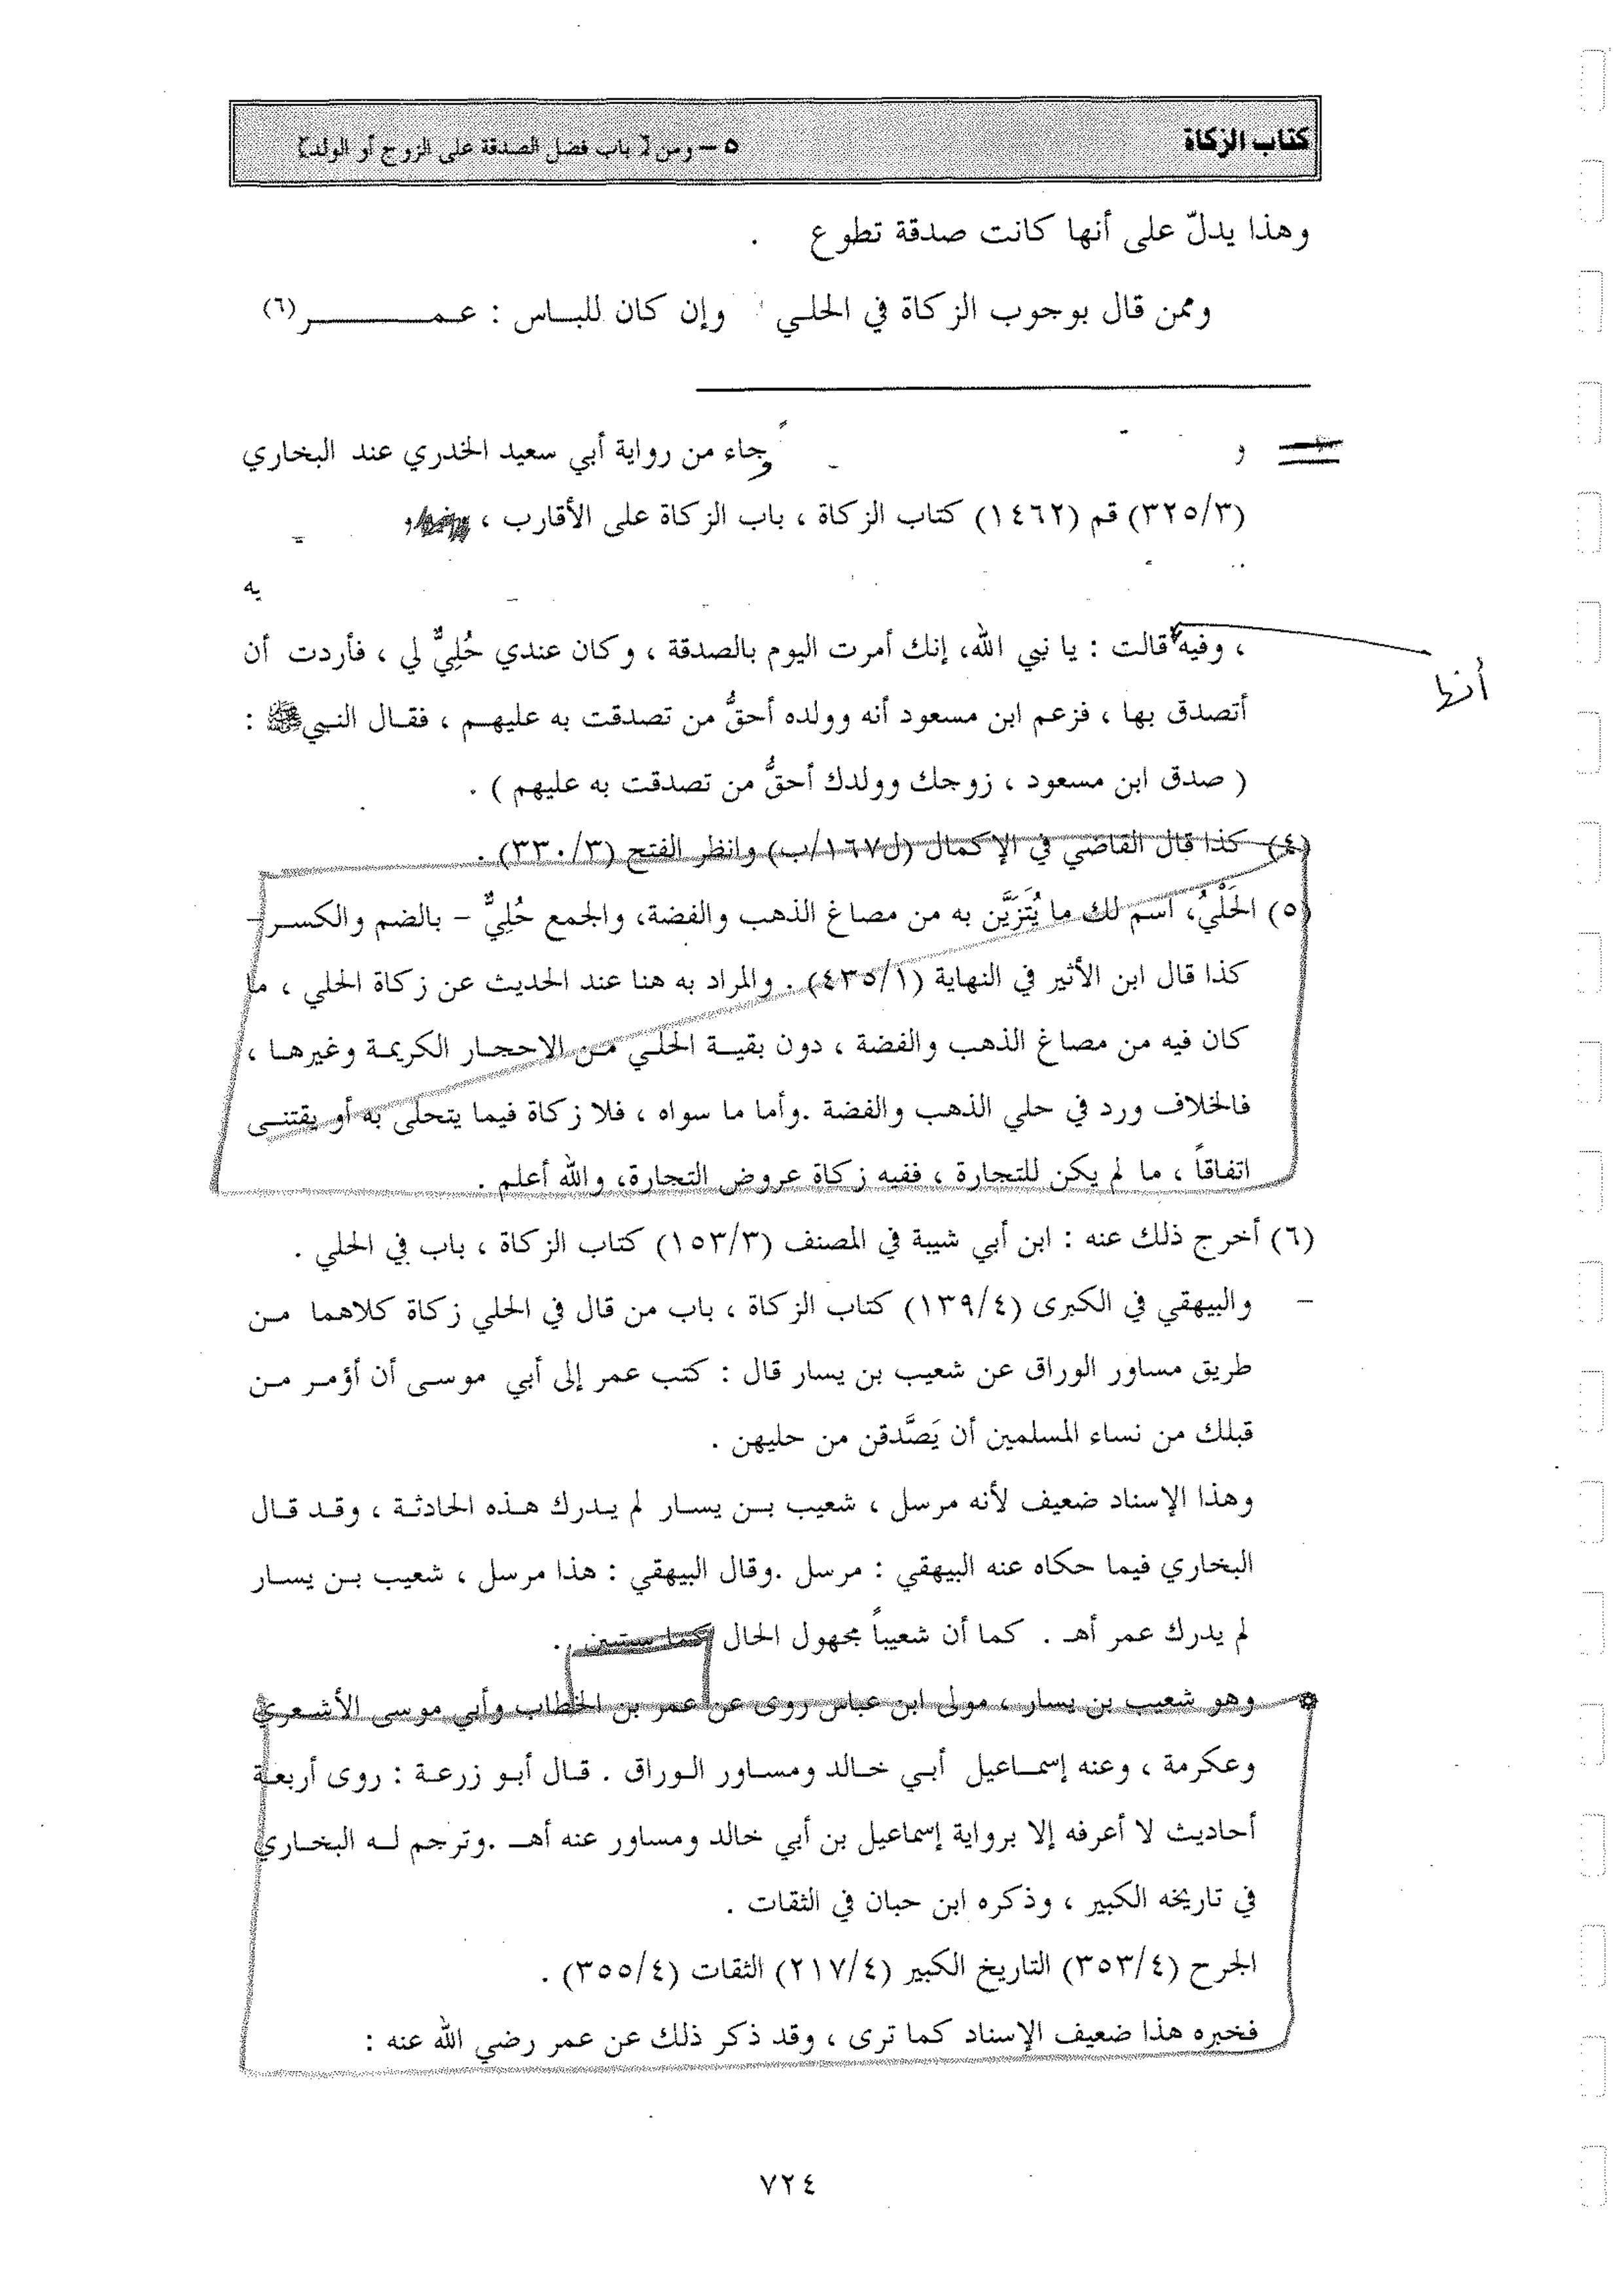 كتاب الزكاة
٥ – ومن [ باب فضل الصدقة على الزوج أو الولد]
وهذا يدلّ على أنها كانت صدقة تطوع .
وممن قال بوجوب الزكاة في الحلي وإن كان للباس : عمر(٦)
= و جاء من رواية أبي سعيد الخدري عند البخاري
(٣٢٥/٣) قم (١٤٦٢) كتاب الزكاة ، باب الزكاة على الأقارب ،
يه
، وفيه قالت : يا نبي الله، إنك أمرت اليوم بالصدقة ، وكان عندي حُلِيٌّ لي ، فأردت أن
أنها
أتصدق بها ، فزعم ابن مسعود أنه وولده أحقُّ من تصدقت به عليهم ، فقال النبي ﷺ :
( صدق ابن مسعود ، زوجك وولدك أحقُّ من تصدقت به عليهم ) .
(٤) كذا قال القاضي في الإكمال (ل١٦٧/ب) وانظر الفتح (٣٣٠/٣) .
(٥) الحَلْيُ، اسم لك ما يُتَزَيَّن به من مصاغ الذهب والفضة، والجمع حُلِيٌّ – بالضم والكسر –
كذا قال ابن الأثير في النهاية (٤٣٥/١) . والمراد به هنا عند الحديث عن زكاة الحلي ، ما
كان فيه من مصاغ الذهب والفضة ، دون بقية الحلي من الاحجار الكريمة وغيرها ،
فالخلاف ورد في حلي الذهب والفضة .وأما ما سواه ، فلا زكاة فيما يتحلى به أو يقتنى
اتفاقاً ، ما لم يكن للتجارة ، ففيه زكاة عروض التجارة، والله أعلم .
(٦) أخرج ذلك عنه : ابن أبي شيبة في المصنف (١٥٣/٣) كتاب الزكاة ، باب في الحلي .
– والبيهقي في الكبرى (١٣٩/٤) كتاب الزكاة ، باب من قال في الحلي زكاة كلاهما من
طريق مساور الوراق عن شعيب بن يسار قال : كتب عمر إلى أبي موسى أن أؤمر من
قبلك من نساء المسلمين أن يَصَّدقن من حليهن .
وهذا الإسناد ضعيف لأنه مرسل ، شعيب بن يسار لم يدرك هذه الحادثة ، وقد قال
البخاري فيما حكاه عنه البيهقي : مرسل .وقال البيهقي : هذا مرسل ، شعيب بن يسار
لم يدرك عمر أهـ . كما أن شعيباً مجهول الحال كما ستبين .
وهو شعيب بن يسار ، مولى ابن عباس روى عن عمر بن الخطاب وأبي موسى الأشعري
وعكرمة ، وعنه إسماعيل أبي خالد ومساور الوراق . قال أبو زرعة : روى أربعة
أحاديث لا أعرفه إلا برواية إسماعيل بن أبي خالد ومساور عنه أهـ .وترجم له البخاري
في تاريخه الكبير ، وذكره ابن حبان في الثقات .
الجرح (٣٥٣/٤) التاريخ الكبير (٢١٧/٤) الثقات (٣٥٥/٤) .
فخبره هذا ضعيف الإسناد كما ترى ، وقد ذكر ذلك عن عمر رضي الله عنه :
٧٢٤